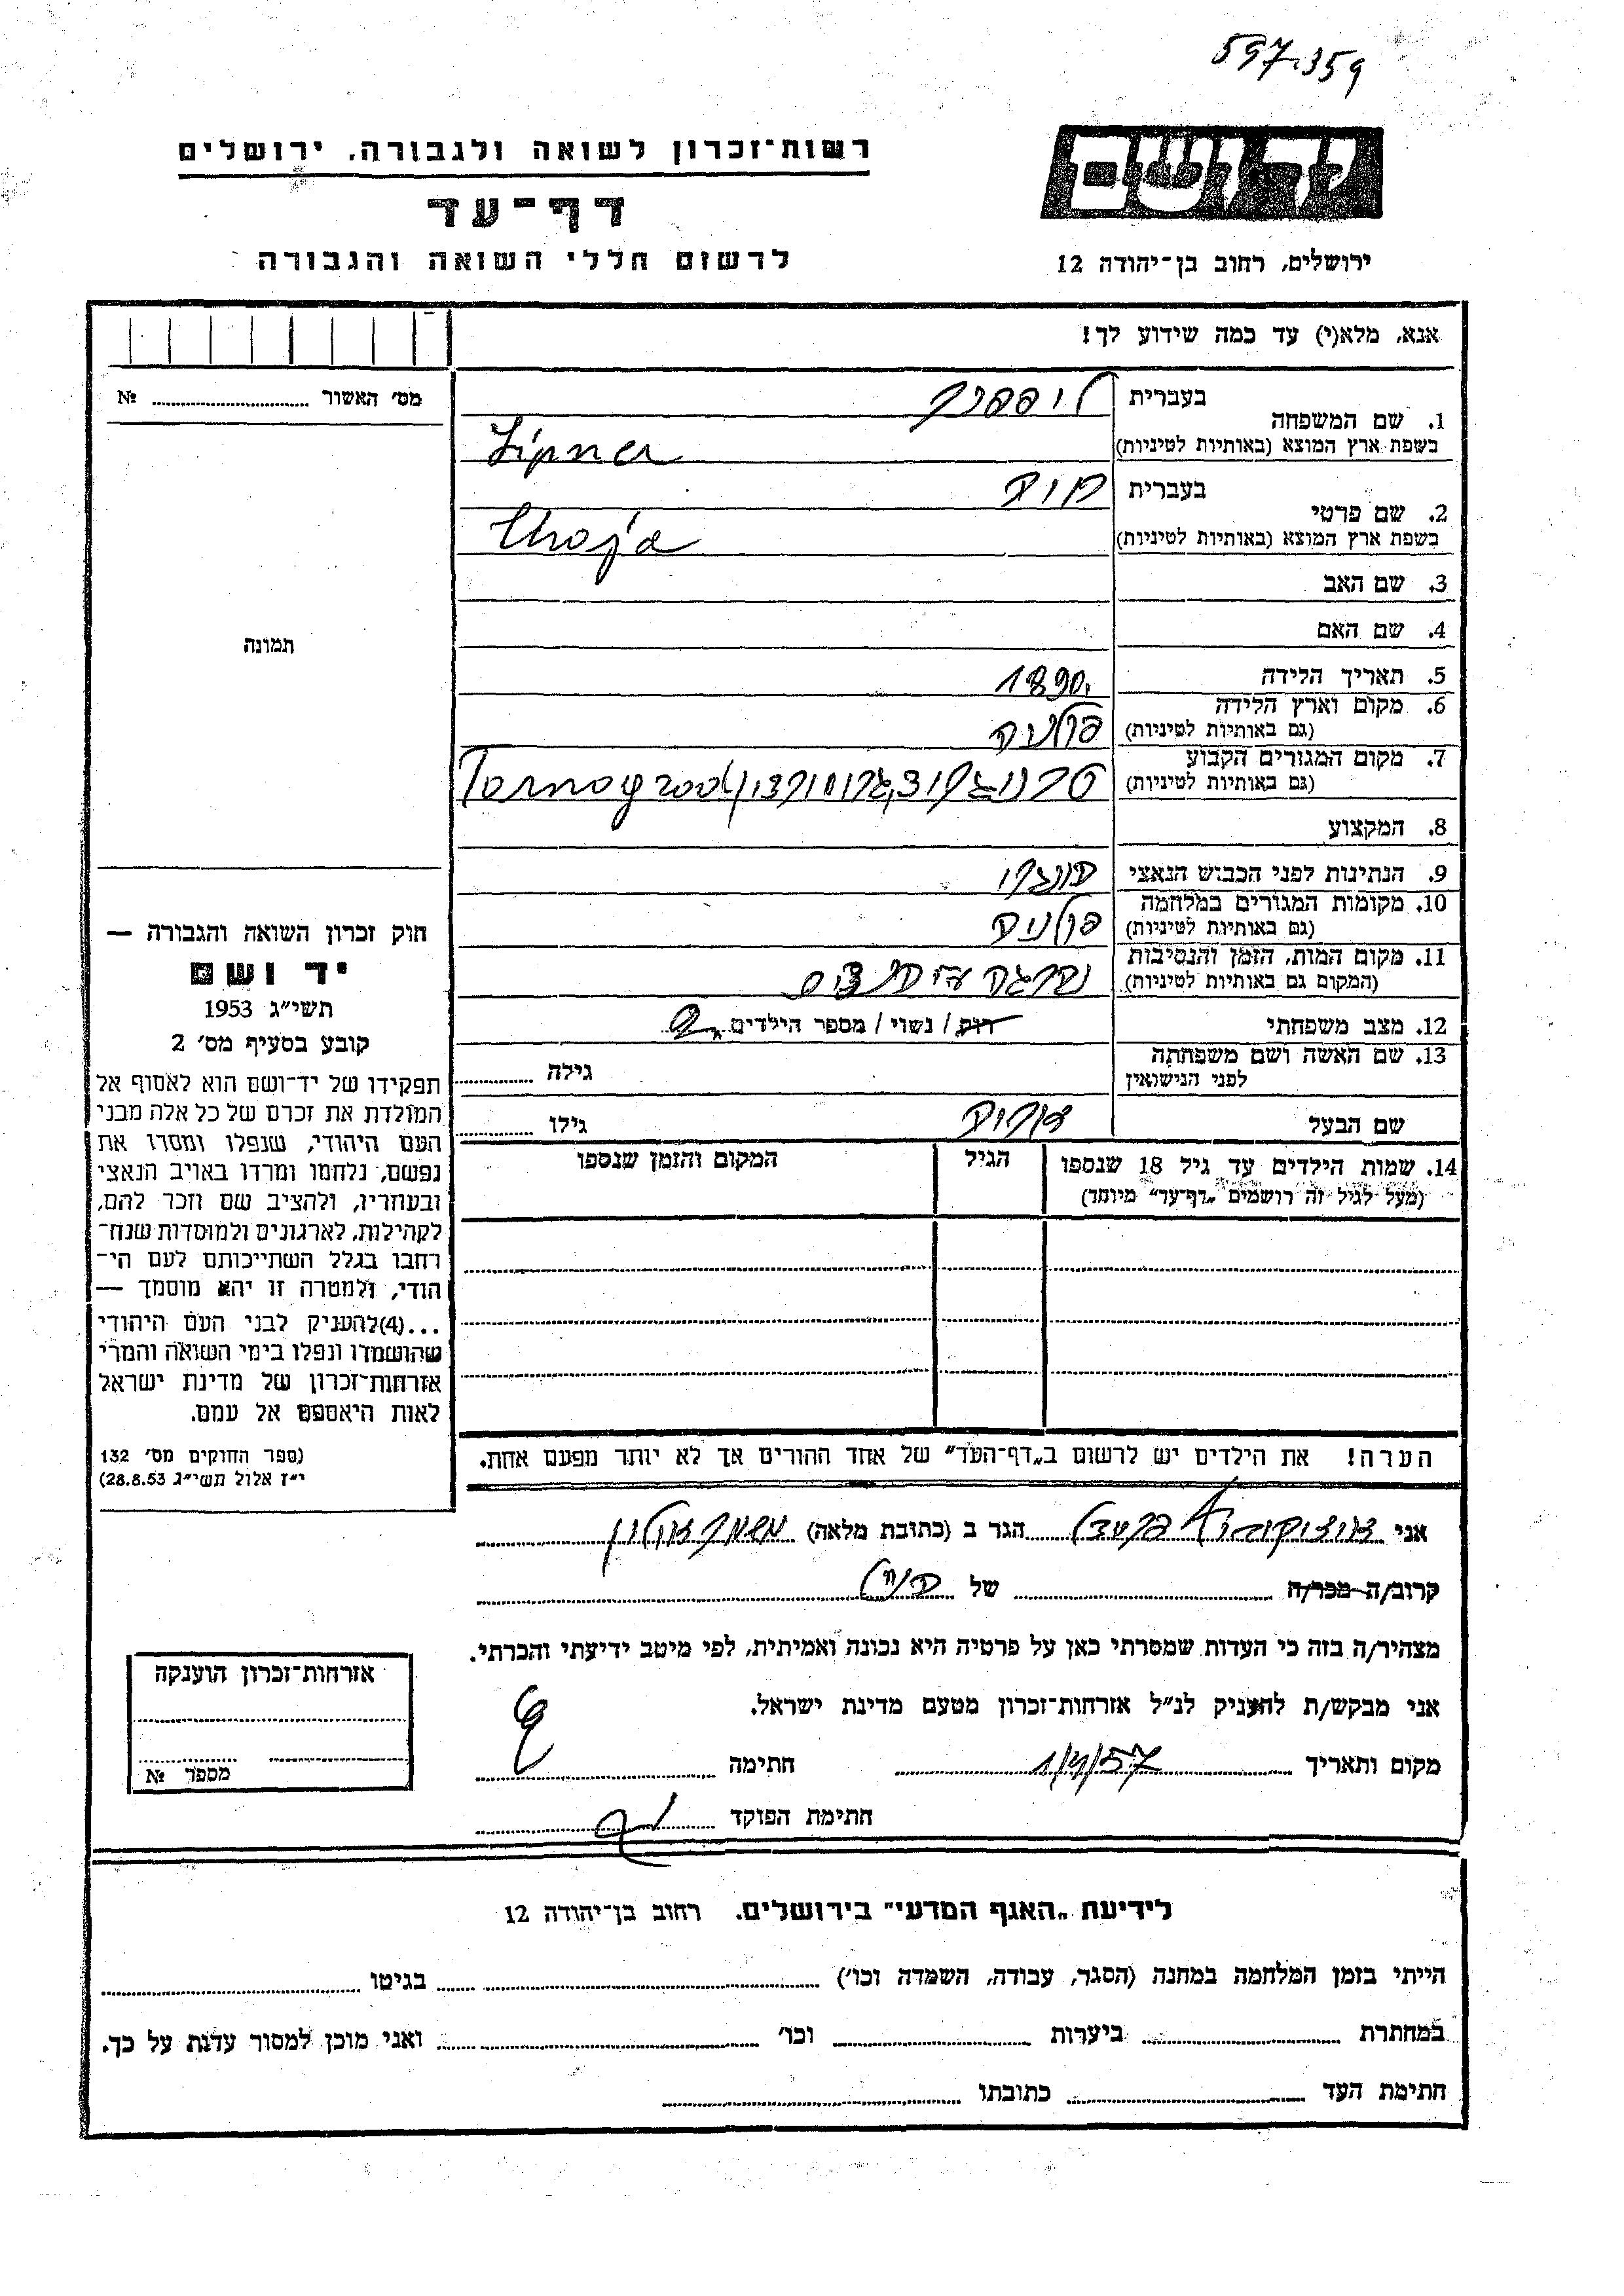 597.359
רשות־זכרון לשואה ולגבורה, ירושלים
ידושם
דף־עד
לרשום חללי השואה והגבורה
ירושלים, רחוב בן־יהודה 12
אנא, מלא(י) עד כמה שידוע לך!
מס׳ האשור № 
1. שם המשפחה בעברית ליפנר
בשפת ארץ המוצא (באותיות לטיניות) Lipner
2. שם פרטי בעברית חיה
בשפת ארץ המוצא (באותיות לטיניות) Choja
3. שם האב
4. שם האם
תמונה
5. תאריך הלידה 1890
6. מקום וארץ הלידה
(גם באותיות לטיניות) פולניה
7. מקום המגורים הקבוע
(גם באותיות לטיניות) Tarnogrod
8. המקצוע
9. הנתינות לפני הכבוש הנאצי
10. מקומות המגורים במלחמה
(גם באותיות לטיניות) פולניה
11. מקום המות, הזמן והנסיבות
(המקום גם באותיות לטיניות) נהרגה
12. מצב משפחתי רווק / נשוי / מספר הילדים 2
13. שם האשה ושם משפחתה
לפני הנישואין גילה
שם הבעל גילו
14. שמות הילדים עד גיל 18 שנספו הגיל המקום והזמן שנספו
(מעל לגיל זה רושמים „דף־עד״ מיוחד)
הערה! את הילדים יש לרשום ב„דף־העד״ של אחד ההורים אך לא יותר מפעם אחת.
חוק זכרון השואה והגבורה —
יד ושם
תשי״ג 1953
קובע בסעיף מס׳ 2
תפקידו של יד־ושם הוא לאסוף אל
המולדת את זכרם של כל אלה מבני
העם היהודי, שנפלו ומסרו את
נפשם, נלחמו ומרדו באויב הנאצי
ובעוזריו, ולהציב שם וזכר להם,
לקהילות, לארגונים ולמוסדות שנח־
רבו בגלל השתייכותם לעם הי־
הודי, ולמטרה זו יהא מוסמך —
...(4)להעניק לבני העם היהודי
שהושמדו ונפלו בימי השואה והמרי
אזרחות־זכרון של מדינת ישראל
לאות היאספם אל עמם.
(ספר החוקים מס׳ 132
י״ז אלול תשי״ג 28.8.53)
אני הגר ב (כתובת מלאה)
קרוב/ה מכר/ה של
מצהיר/ה בזה כי העדות שמסרתי כאן על פרטיה היא נכונה ואמיתית, לפי מיטב ידיעתי והכרתי.
אני מבקש/ת להעניק לנ״ל אזרחות־זכרון מטעם מדינת ישראל.
מקום ותאריך 1/4/57 חתימה
חתימת הפוקד
אזרחות־זכרון הוענקה
מספר №
לידיעת „האגף המדעי״ בירושלים. רחוב בן־יהודה 12
הייתי בזמן המלחמה במחנה (הסגר, עבודה, השמדה וכו׳) בגיטו
במחתרת ביערות וכו׳ ואני מוכן למסור עדות על כך.
חתימת העד כתובתו